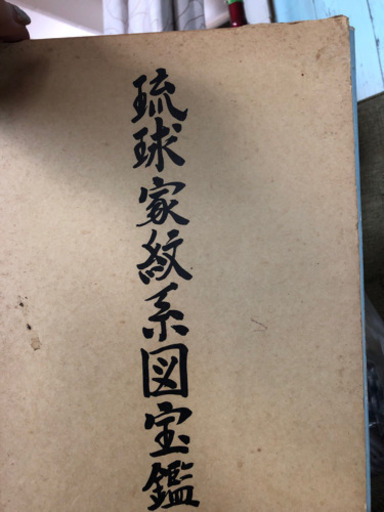 琉球家紋系図宝鑑